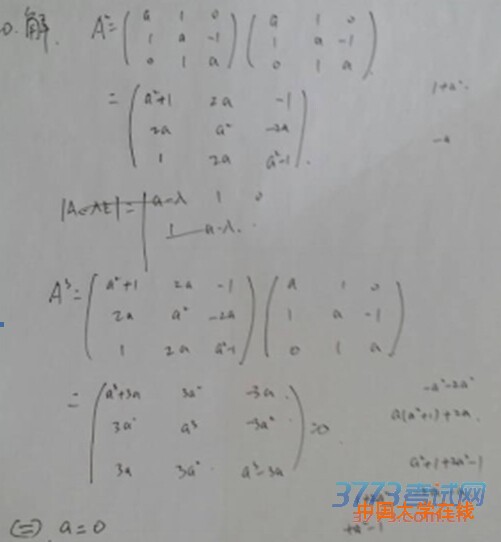 0.解. A²= ( a 1 0 ) ( a 1 0 )
1 a -1 1 a -1
0 1 a 0 1 a
= ( a²+1 2a -1 )
2a a² -2a
1 2a a²-1
1+a²
-a
|A-λE|= | a-λ 1 0
1 a-λ
A³= ( a²+1 2a -1 ) ( a 1 0 )
2a a² -2a 1 a -1
1 2a a²-1 0 1 a
= ( a³+3a 3a² -3a )
3a² a³ -3a² =0
3a 3a² a³-3a
-a²-2a²
a(a²+1)+2a
a²+1+2a²-1
3773考试网
中国大学在线
+a²-1
(二) a=0